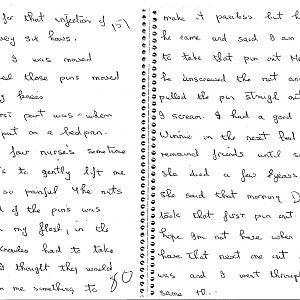 for that injection of
very six hours.
I was moved
those pins moved
knees
part was - when
put on a bedpan.
four nurse's sometime
to gently lift me
so painful The nuts
of the pins was
my flesh, in the
had to take
I thought they would
me something to
80
make it painless but h
he came and said I am
to take that pin out
he unscrewed the nut and
pulled the pin straigh out
I scream. I had a good
Winnie in the next bed
remained friends until s
she died a few years
she said that morning D
took that first pin out
hope Im not here when
have that next one out
was and I went through
same to..